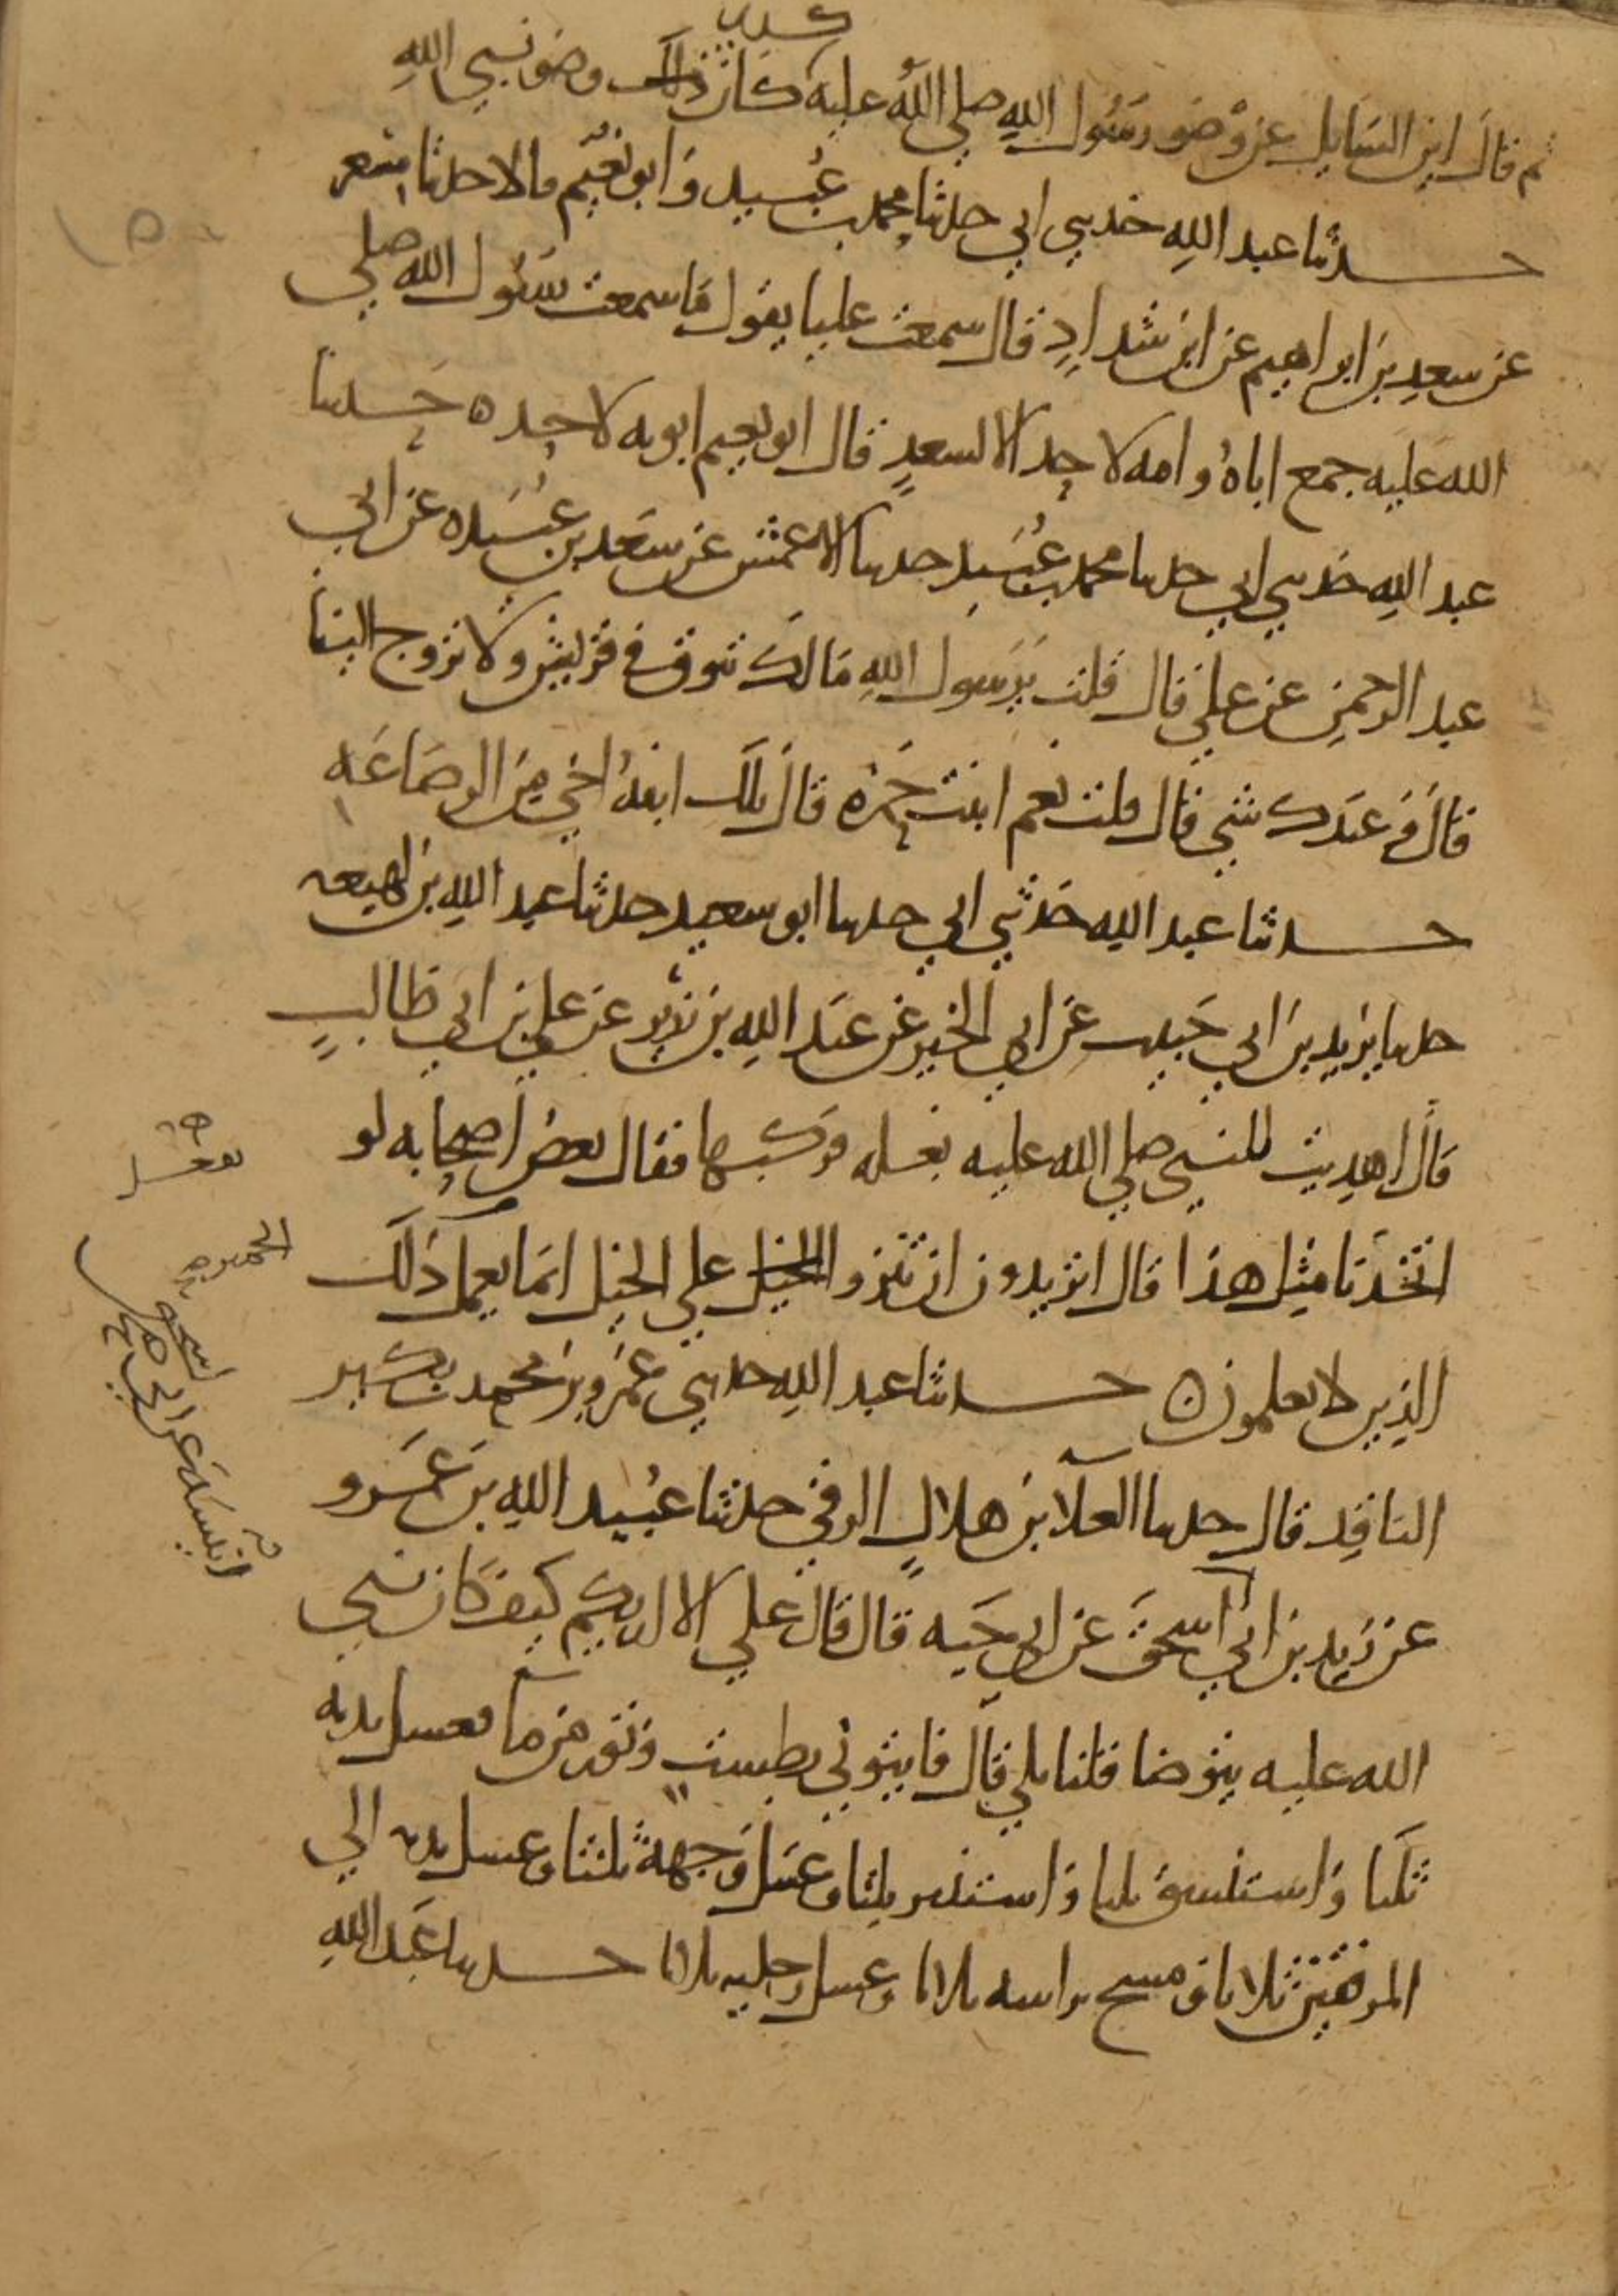 كذى
ثم قال اين السايل عن وضو رسول الله صلى الله عليه كان ذلك وضو نبي الله
حدثنا عبد الله حدثني ابي حدثنا محمد بن عبيد وابو نعيم قالا حدثنا مسعر
عن سعد بن ابراهيم عن ابن شداد قال سمعت عليا يقول ما سمعت رسول الله صلى
الله عليه جمع اباه وامه لاحد الا لسعد قال ابو نعيم ابويه لاحد ه حدثنا
عبد الله حدثني ابي حدثنا محمد بن عبيد حدثنا الاعمش عن سعد بن عبيده عن ابي
عبد الرحمن عن علي قال قلت يرسول الله مالك تنوق في قريش ولا تزوج الينا
قال وعندك شي قال قلت نعم ابنت حمزه قال تلك ابنة اخي من الرضاعه
حدثنا عبد الله حدثني ابي حدثنا ابو سعيد حدثنا عبد الله بن لهيعه
حدثنا يزيد بن ابي حبيب عن ابي الخير عن عبد الله بن زرير عن علي بن ابي طالب
قال اهديت للنبي صلى الله عليه بغله فركبها فقال بعض اصحابه لو
اتخذنا مثل هذا قال اتريدون ان تنزو الخيل على الخيل انما يعمل ذلك
الذين لا يعلمون ه حدثنا عبد الله حدثني عمرو بن محمد بن بكير
الناقد قال حدثنا العلا بن هلال الرقي حدثنا عبيد الله بن عمرو
عن زيد بن ابي اسحق عن ابي حيه قال قال علي الا اريكم كيف كان نبي
الله عليه يتوضا قلنا بلى قال فايتوني بطست وتور من ما فغسل يديه
ثلثا واستنشق ثلثا واستنثر ثلثا وغسل وجهه ثلثا وغسل يديه الى
المرفقين ثلاثا ومسح براسه ثلاثا وغسل رجليه ثلاثا حدثنا عبد الله
الحمير
انيسه عن ابي اسحق